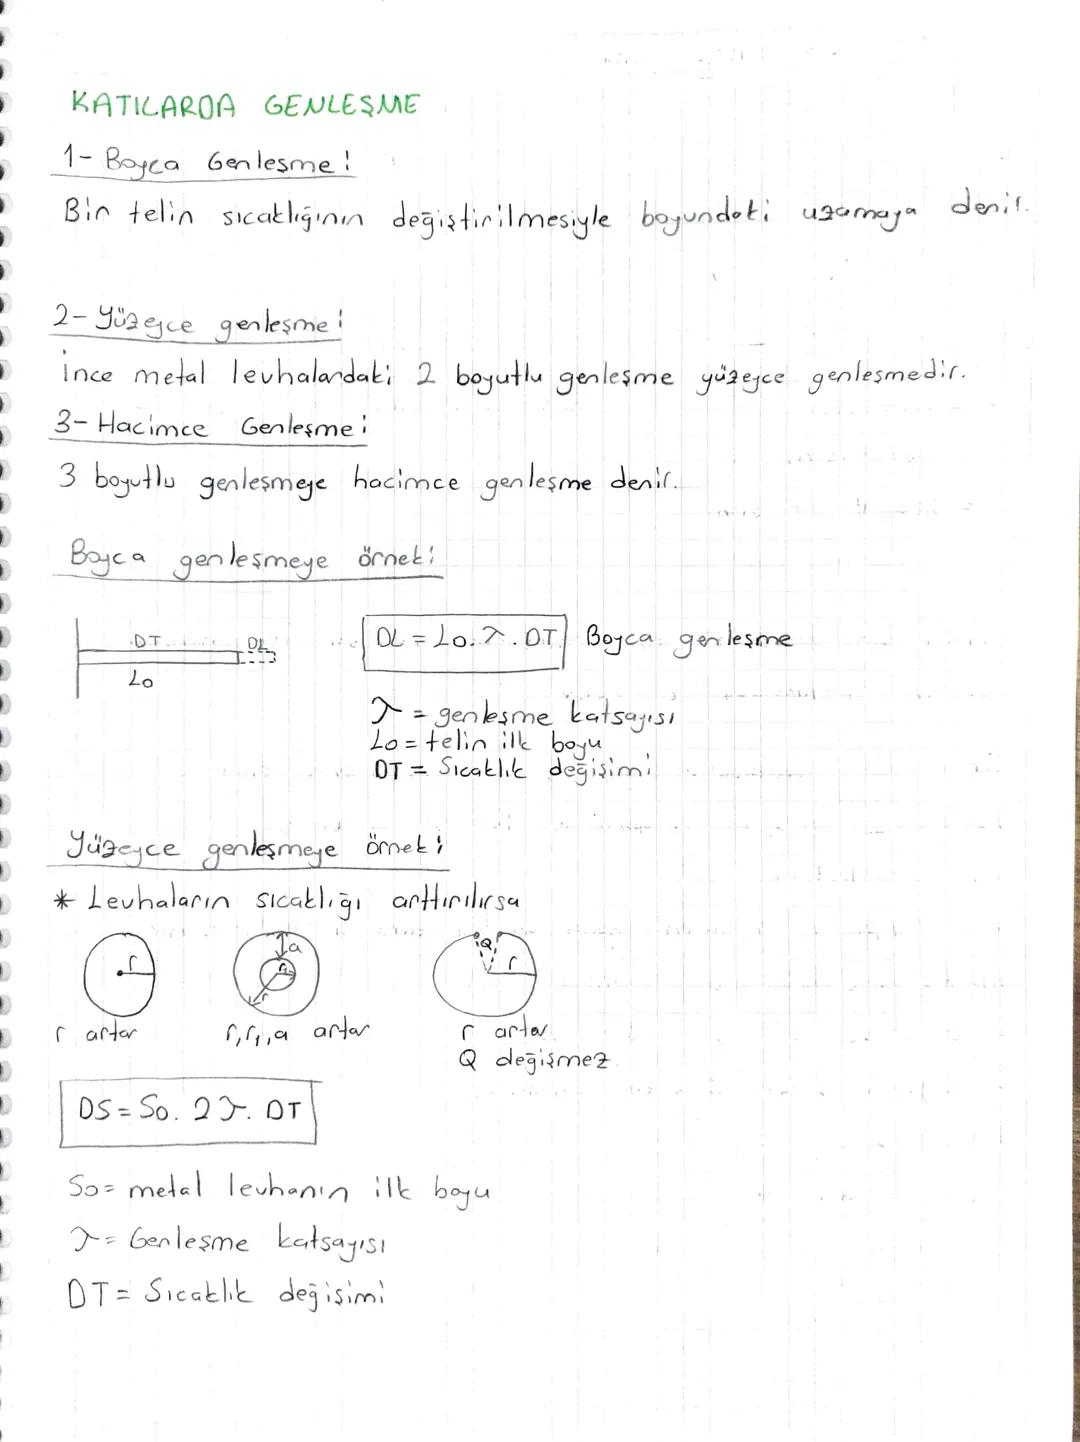 KATILARDA GENLEŞME
1- Boyca Genleşme:
Bir telin sıcaklığının değiştirilmesiyle boyundaki uzamaya denir.
2- Yüzeyce genleşme:
İnce metal levhalardaki 2 boyutlu genleşme yüzeyce genleşmedir.
3- Hacimce Genleşme:
3 boyutlu genleşmeye hacimce genleşme denir.
Boyca genleşmeye örnek:
DT DL
L0
DL = L0.λ.DT Boyca genleşme
λ = genleşme katsayısı
L0 = telin ilk boyu
DT = Sıcaklık değişimi
Yüzeyce genleşmeye örnek:
* Levhaların sıcaklığı arttırılırsa
r
a r1 r
Q r
r artar
r, r1, a artar
r artar
Q değişmez
DS = S0. 2λ. DT
S0 = metal levhanın ilk boyu
λ = Genleşme katsayısı
DT = Sıcaklık değişimi